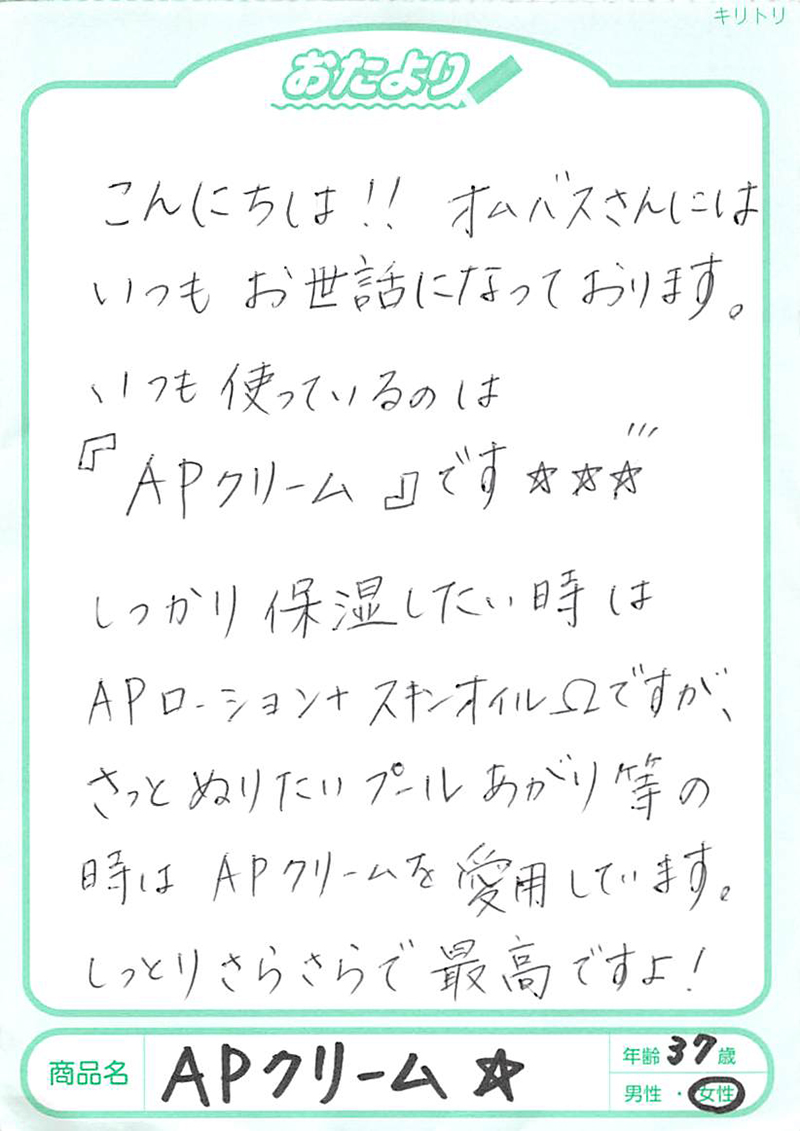 キリトリ
おたより
こんにちは!! オムバスさんには
いつも お世話になっております。
いつも使っているのは
『APクリーム』です☆☆☆
しっかり保湿したい時は
APローション+スキンオイルΩですが、
さっとぬりたいプールあがり等の
時は APクリームを愛用しています。
しっとりさらさらで最高ですよ!
商品名 APクリーム☆
年齢 37歳
男性・女性